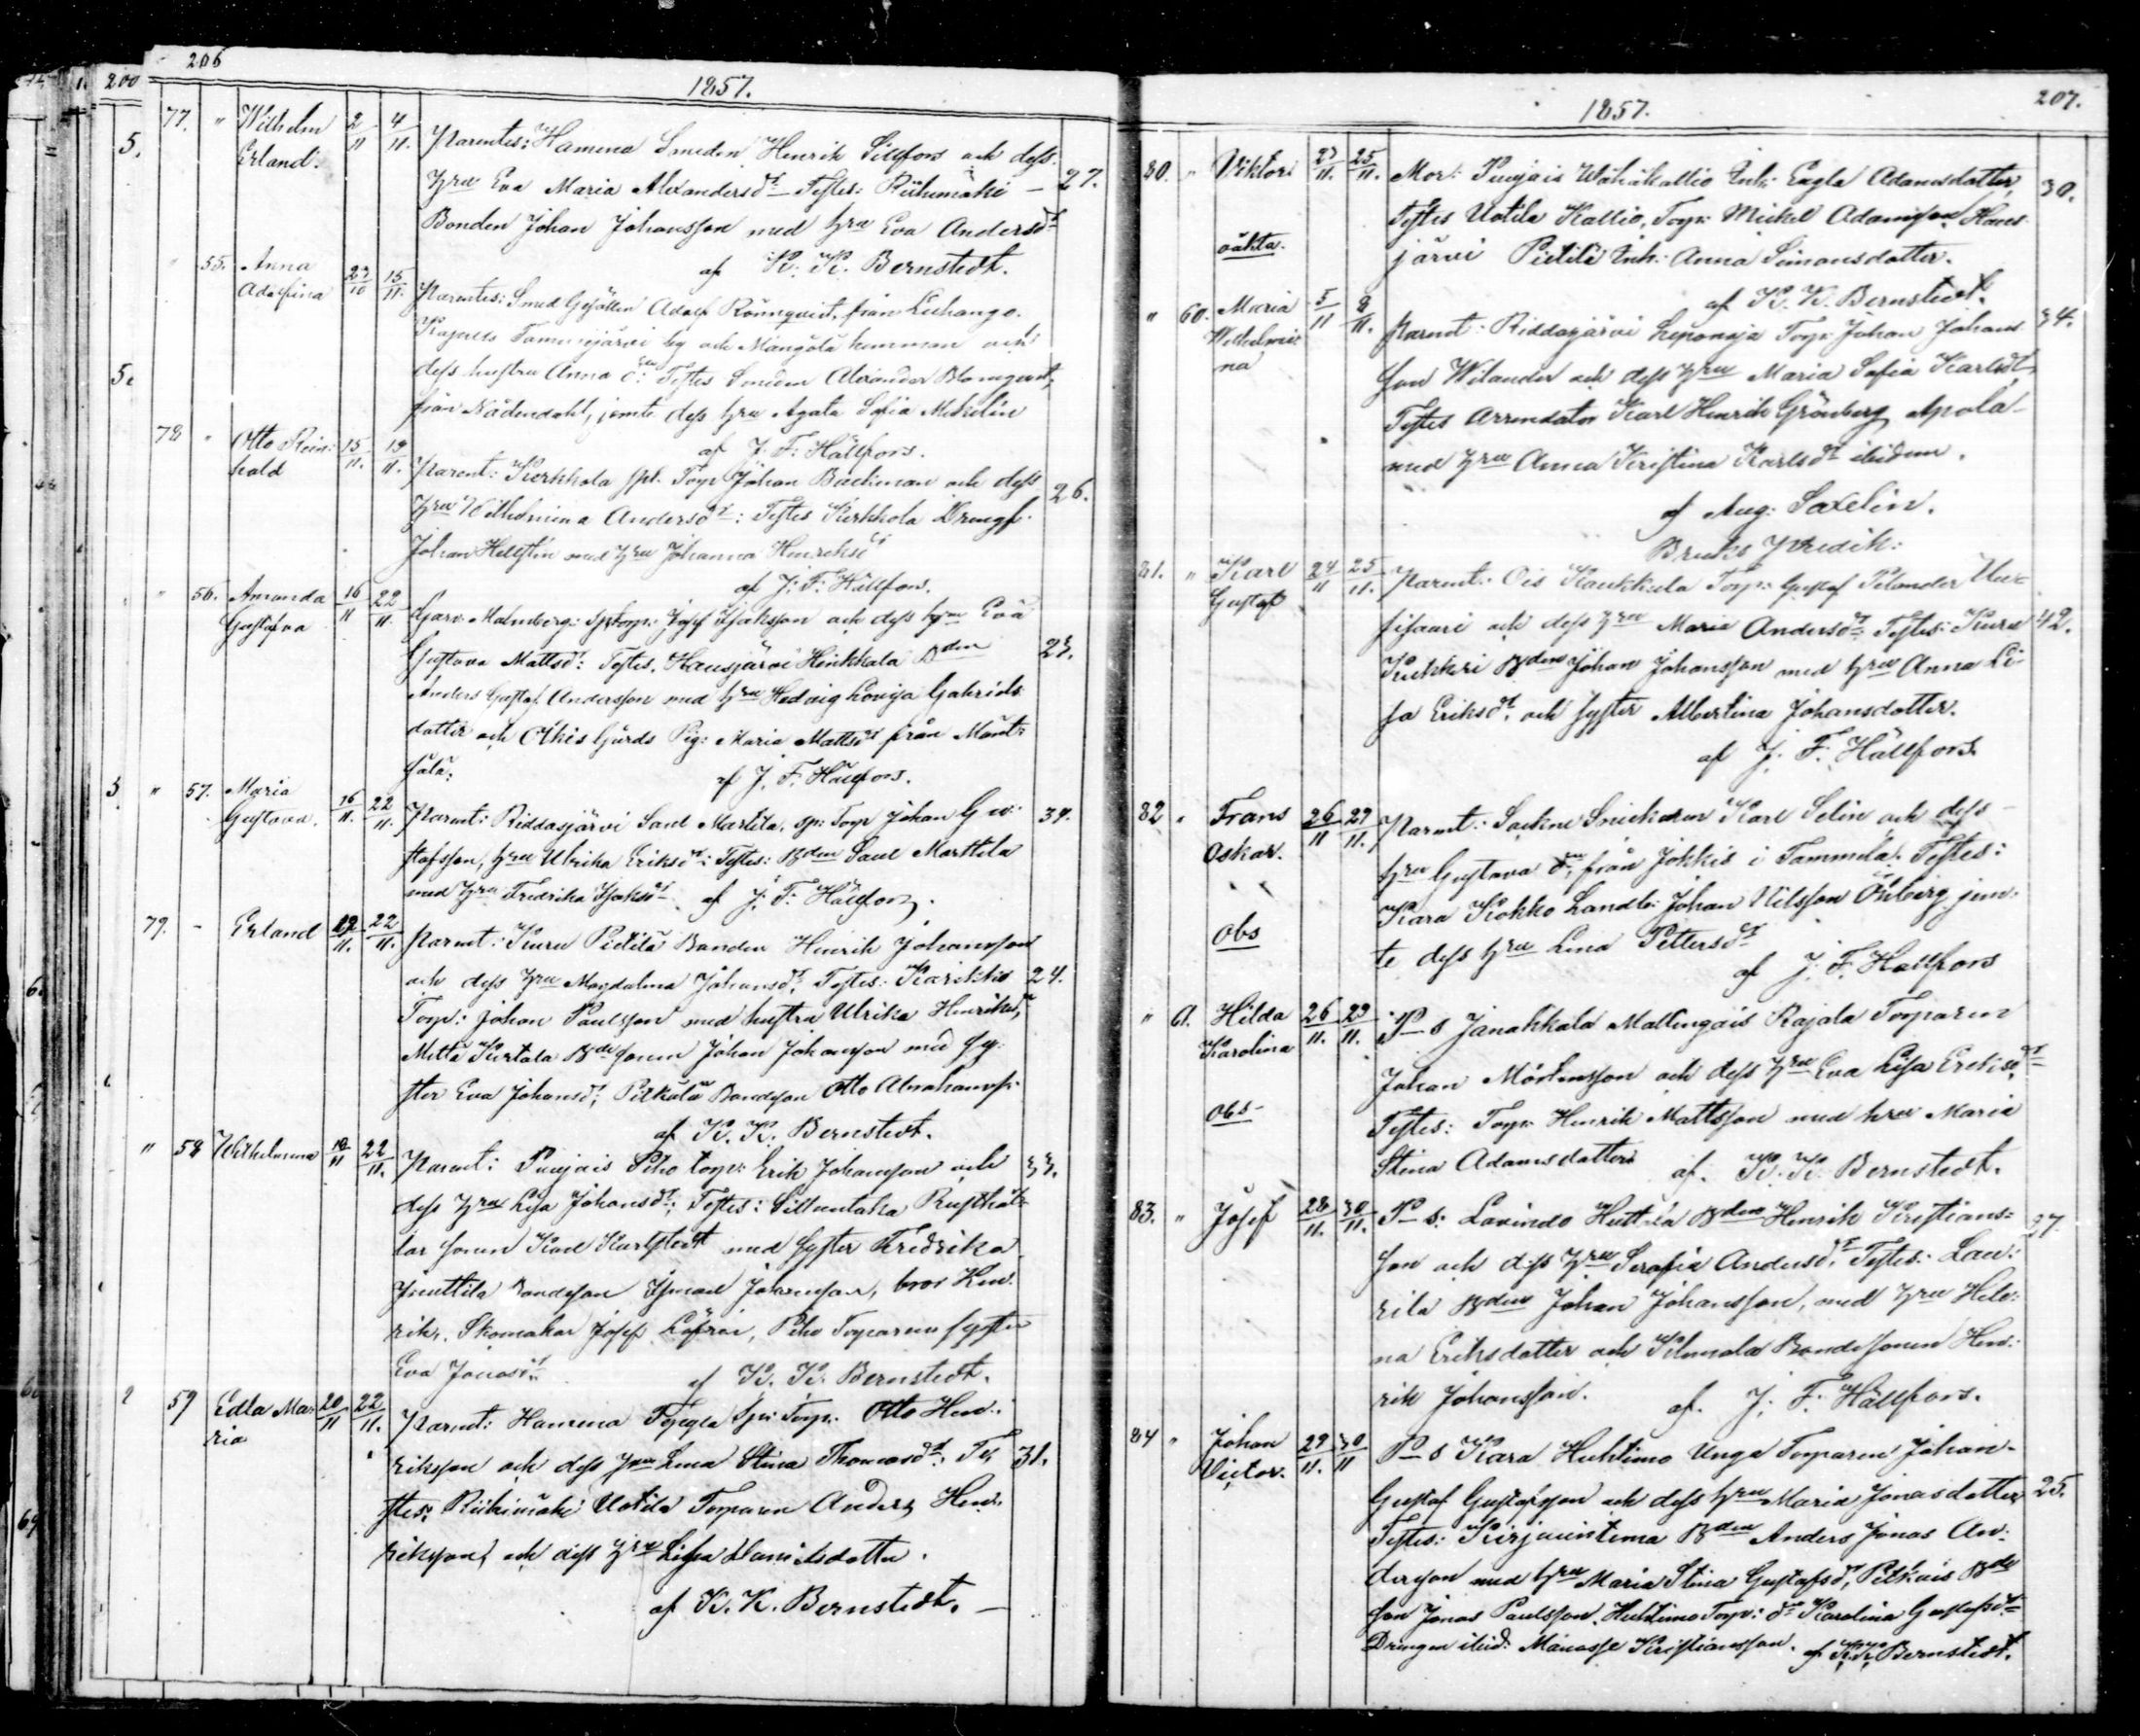 206
1857.
77. " Wilhelm Erland. 2/11 4/11. Parentes: Hamina Smeden Henrik Sillfors och dess
hru Eva Maria Alexandersdt Testes: Riihimäki — 27.
Bonden Johan Johansson med hru Eva Andersdt
af K. K. Bernstedt.
" 55. Anna Adolfina 27/10 15/11. Parentes: Smed Gesällen Adolf Rönnqvist, från Luhango.
Kapell Tammijärvi by och Mangola hemman och
dess hustru Anna d: Testes Smeden Alexander Blomqvist,
från Nådendahl, jemte dess hru Agata Sofia Mikelin
af J. F. Hällfors.
78 " Otto Reinhold 15/11. 19/11. Parent: Kirkkola spl. Torp Johan Backman och dess 26.
hru Wilhelmina Andersdt: Testes Kirkkola Drengf.
Johan Hellstin med hru Johanna Henriksdt
af J: F: Hällfors.
" 56. Amanda Gustafva 16/11 22/11. Garv. Malmberg: sptorp: Josef Isaksson och dess hru Eva
Gustava Mattsdt: Testes. Hausjärvi Heikkala Bden
Anders Gustaf Andersson med hru Hedvig Lovisa Gabriels
dotter och Oikis Gårds Pig: Maria Mattsdt från Mänt-
sälä.
af J. F. Hällfors.
" 57. Maria Gustava. 16/11. 22/11. Parent: Riddasjärvi Saul Martila, sp: Torp Johan Gu- 34.
stafsson, hru Ulrika Eriksdt: Testes: Bden Saul Marttila
med hru Fredrika Isaksdt af J. F. Hällfors.
79. - Erland 19/11. 22/11. Parent: Kuru Pietilä Bonden Henrik Johansson
och dess hru Magdalena Johansdt, Testes: 24.
Torp: Johan Paulsson med hustru Ulrika Henriksdt,
Mettä Kurtala Bde sonen Johan Johansson med sy-
ster Eva Johansdt, Pitkälä Bondeson Otto Abrahamss.
af K. K. Bernstedt.
" 58 Wilhelmina 19/11 22/11. Parent: Punjais Piho torp: Erik Johansson och 33.
dess hru Lisa Johansdt: Testes: Silluntaka Rusthål-
lar sonen Karl Karlstedt med syster Fredrika
Juuttila Bondeson Johansson, bror Hen-
rik, Skomakar Josef, Piho Torparens syster
Eva Jonasdt
af K. K. Bernstedt.
59 Edla Maria 20/11 22/11. Parent: Hamina Sp: Torp. Otto Hen-
riksson och dess hru Lena Stina Thomasdt, Te- 31.
stes: Riihimäki Uotila Torparen Anders Hen-
riksson, och dess hru Lisa Danielsdotter.
af K. K. Bernstedt. —
207.
1857.
80. " Viktor oäkta. 23/11. 25/11. Mor: Punjais Wähäkallio Inh: Eagla Adamsdotter, 30.
Testes Uotila Kallio, Torp: Mickel Adamsson, Haus-
järvi Pietilä Inh: Anna Simonsdotter.
af K. K. Bernstedt.
" 60. Maria Wilhelmina 5/11 8/11. Parent: Riddasjärvi Leponoja Torp: Johan Johans- 34.
son Wilander och dess hru Maria Sofia Karlsdt
Testes Arrendator Karl Henrik Grönberg Apola
med hru Anna Kristina Karlsdt ibidem.
af Aug: Saxelin.
Bruks Predik:
81. " Karl Gustaf 24/11 25/11. Parent: Ois Kaukkula Torp: Gustaf Pilander Uu-
sisaari och dess hru Maria Andersdt Testes: Kuru 42.
Kukkuri Bden Johan Johansson med hru Anna Li-
sa Eriksdt. och syster Albertina Johansdotter.
af J. F. Hällfors.
82 " Frans Oskar. Obs 26/11 29/11. Parent: Sockne Snickaren Karl Selin och dess
hru Gustava dr, från Jokkis i Tammela: Testes:
Kara Kokko Landb: Johan Nilsson Öhberg jem-
te dess hru Lena Pettersdt
af J. F. Hällfors
" 61. Hilda Karolina Obs- 26/11. 29/11. P-s Janakkala Mallingais Rajala Torparen
Johan Mårtensson och dess hru Eva Lisa Eriksdt
Testes: Torp: Henrik Mattsson med hru Maria
Stina Adamsdotter af. K. K. Bernstedt.
83. " Josef 28/11. 30/11. P-s: Lavindo Huttila Bden Henrik Kristians- 27.
son och dess hru Serafia Andersdt Testes: Lau-
rila Bden Johan Johansson, med hru Hele-
na Eriksdotter och Bondesonen Hen-
rik Johansson. af. J. F. Hällfors.
84 " Johan Victor. 29/11. 30/11 P-s Kara Huhtimo Unga Torparen Johan
Gustaf Gustafsson och dess hru Maria Jonasdotter 25.
Testes: Bden Anders Jonas An-
dersson med hru Maria Stina Gustafsdt, Pitkäis Bde
son Jonas Paulsson, Huhtimo Torp: dr Karolina Gustafsdt
Drengen ibid: Manasse Kristiansson. af K. K. Bernstedt.